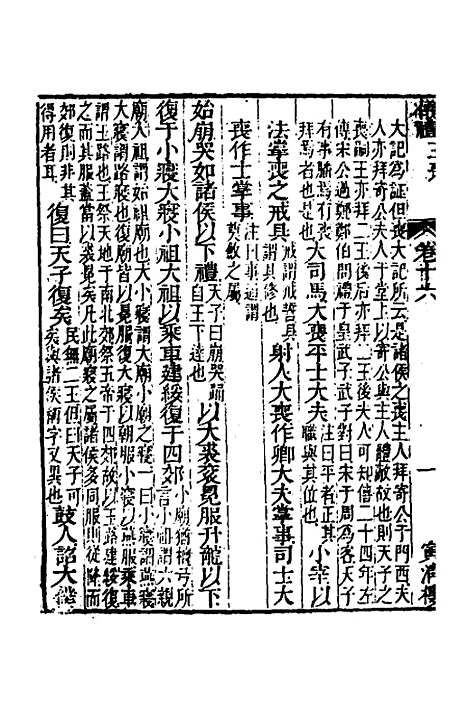 儀禮
卷十六
一
大記為証但喪大記所云是諸侯之喪主人拜寄公于門西夫
人亦拜寄公夫人于堂上以寄公與主人體敵故也則天子之
喪嗣王亦拜二王後后亦拜二王後夫人可知僖二十四年左
傳宋公過鄭鄭伯問禮于皇武子武子對曰宋于周為客天子
有事膰焉有喪
拜焉者也是也 大司馬大喪平士大夫 注曰平者正其
職與其位也 小宰以
法掌喪之戒具 戒謂戒誓具
謂具修也 射人大喪作卿大夫掌事司士大
喪作士掌事 注曰事謂
奠斂之屬
始崩哭如諸侯以下禮 天子曰崩哭踊
自王下達也 以大裘袞冕服升龍以下
復于小寢大寢小祖大祖以乘車建綏復于四郊 小廟猶祧号所
言小祖謂六親
廟大祖謂始祖廟也大小寢謂大廟小廟之寢一曰小寢謂燕寢
大寢謂路寢也復廟皆以冕服復大寢以朝服小寢以燕服乘車
謂王路也王祭天地于南北郊祭五帝于四郊故以玉路建綏復
之而其服蓋當以裘冕矣凡此廟寢之屬諸侯多同服則從降而
郊復則非其
得用者耳 復曰天子復矣 民無二王但曰天子可
矣與諸侯稱字又異也 鼓人詔大